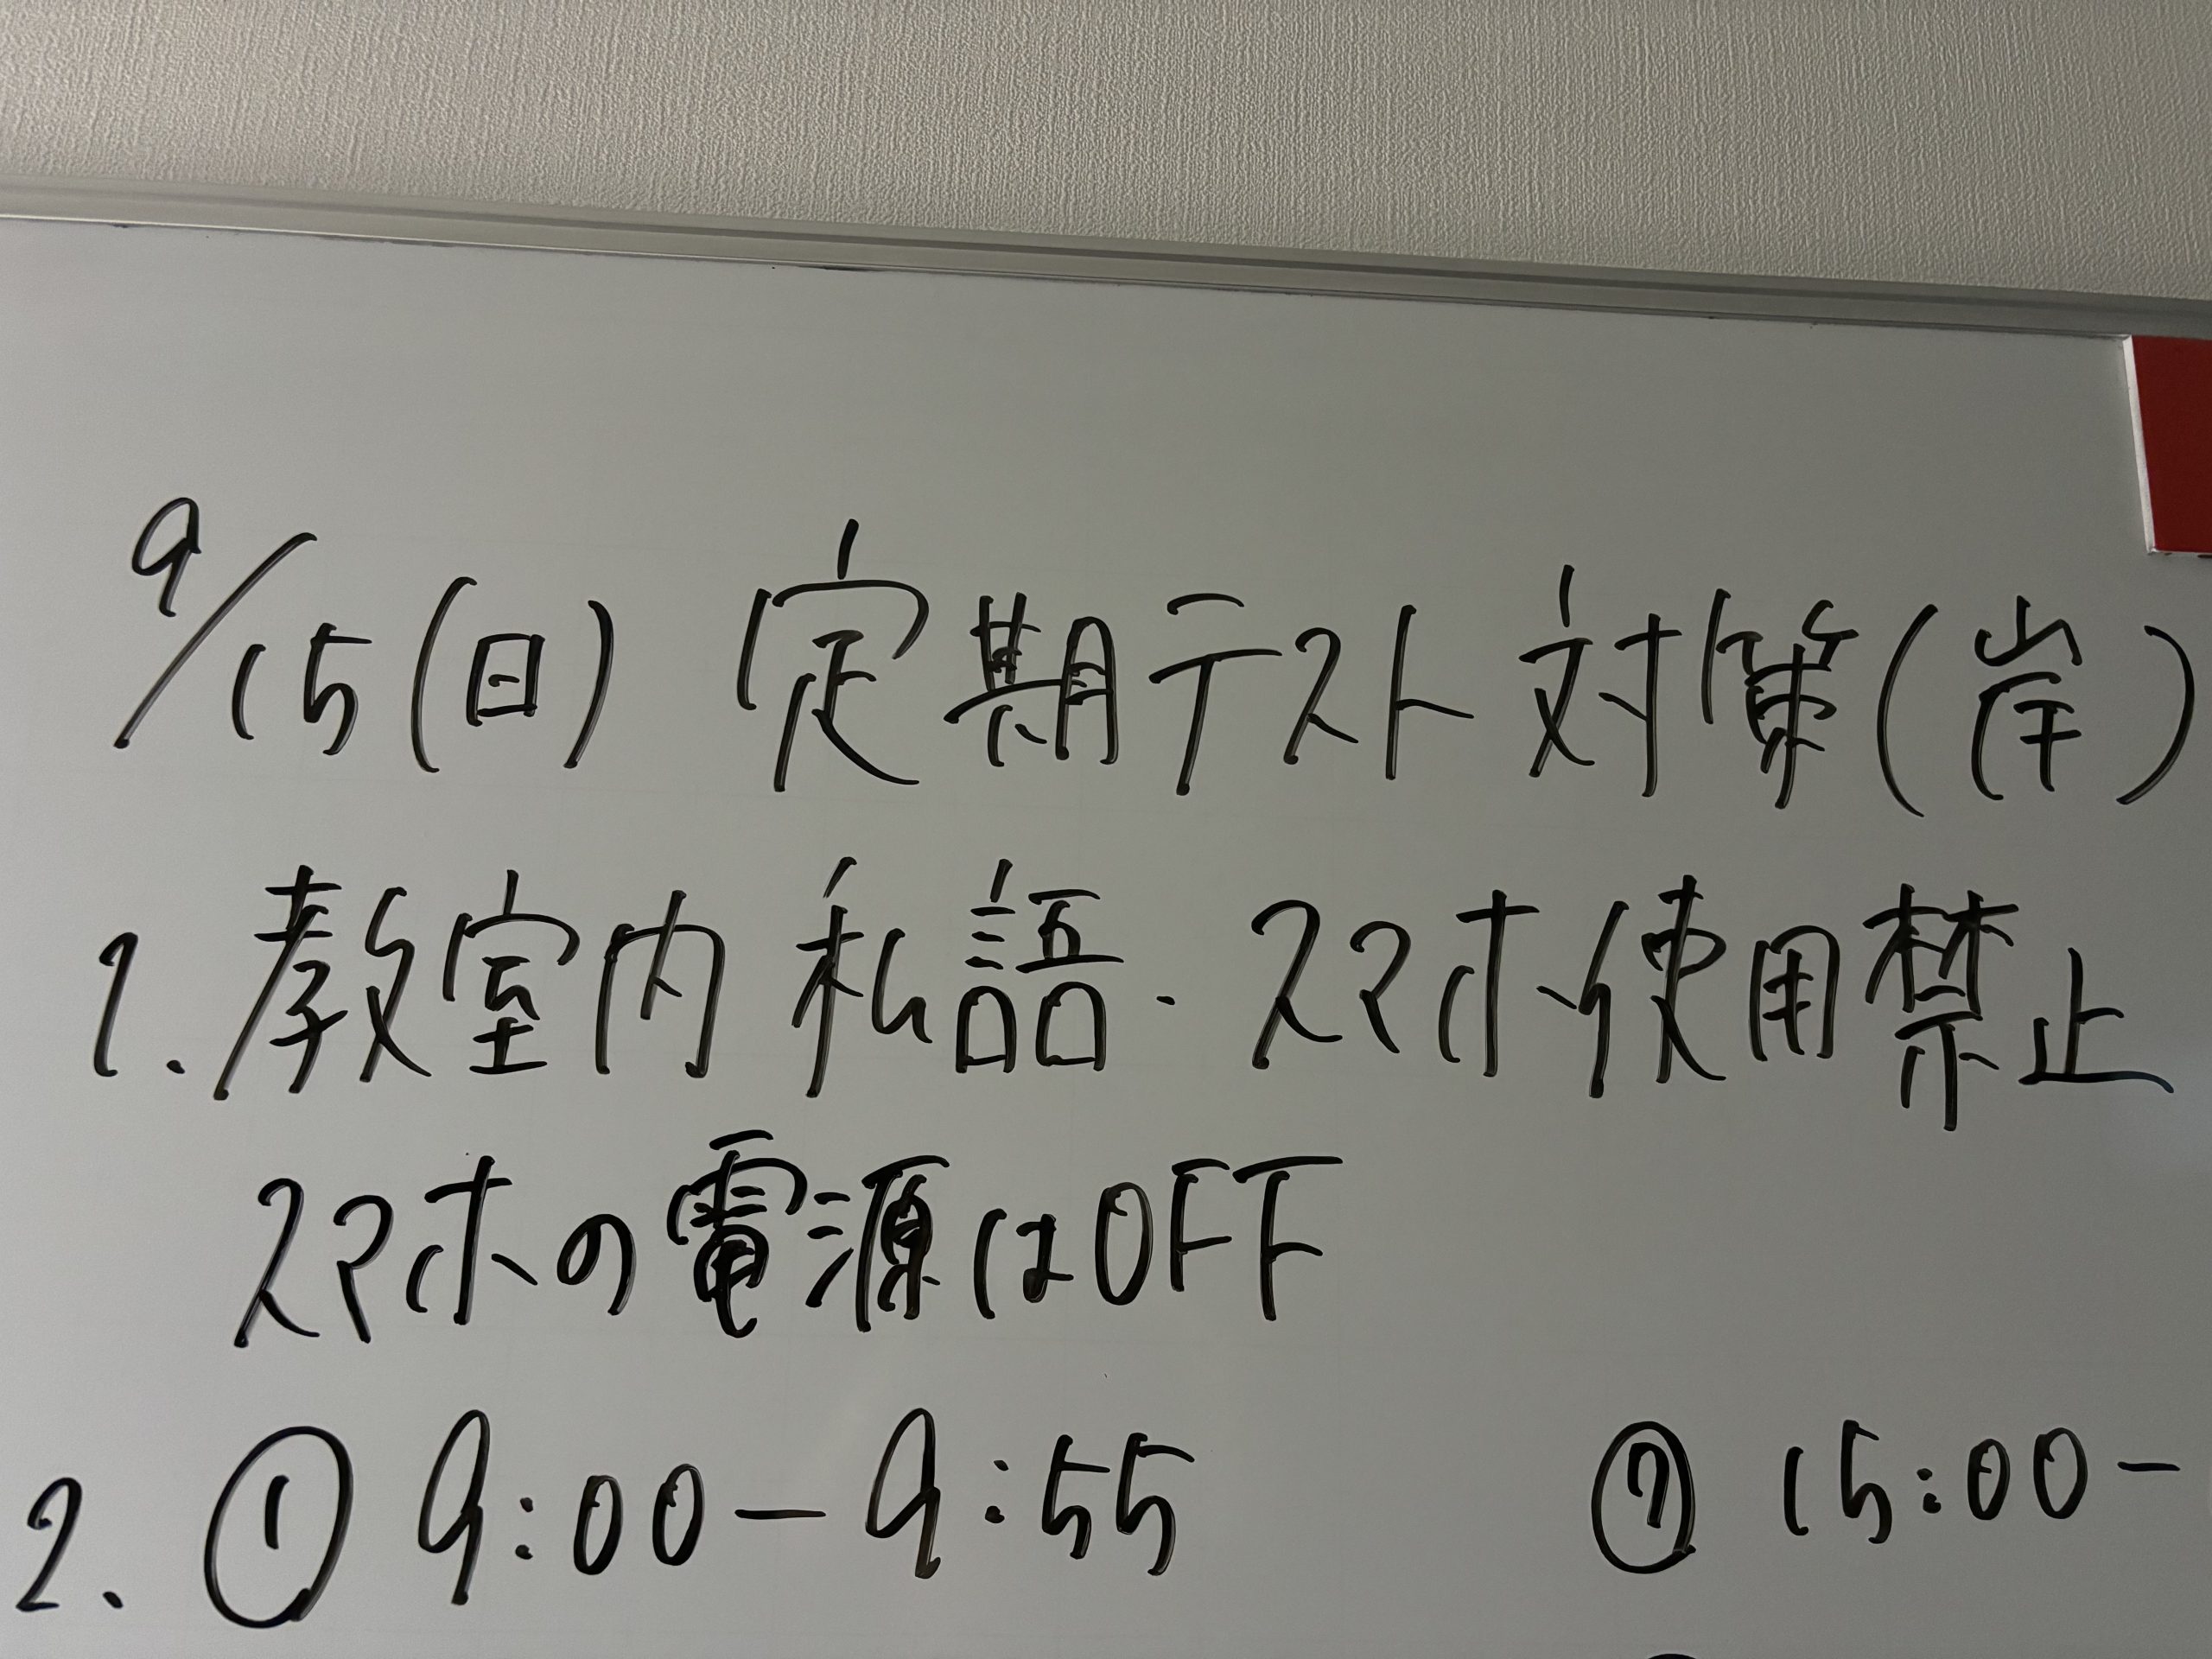 9/15(日) 定期テスト対策(岸)
1. 教室内 私語・スマホ使用禁止
スマホの電源はOFF
2. ① 9:00－9:55 ⑦ 15:00－